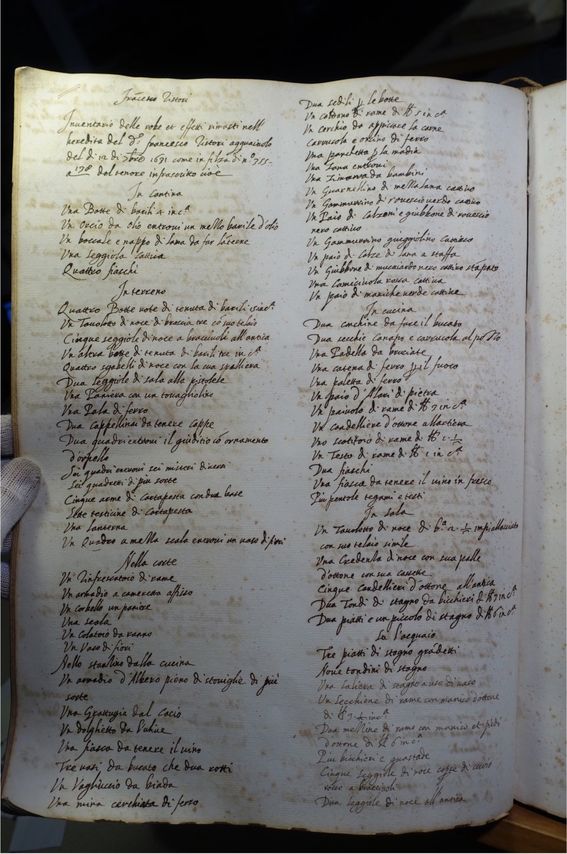 Francesco Vettori
Inventario delle robe et effetti rimasti nell'
heredità del d.º Francesco Vettori agguainolo
del dì 12 di 1671 come in filza di n.º 755
a 178 dal tenore infrascritto cioè
In Cantina
Una Botte di barili 4 inc.ª
Un orcio da olio entrovi un mezzo barile d'olio
Un boccale e nappo di
Una seggiola cattiva
Quattro fiaschi
In terreno
Quattro Botte vote di tenuta di barili
Un Tavoloto di noce di braccia tre cõ suo telaio
Cinque seggiole di noce a bracciuoli all'antica
Un altra botte di tenuta di barili tre in c.ª
Quattro sgabelli di noce con la sua spalliera
Dua seggiole di sala alla pistolese
Una Paniera con un tovagliolino
Una Pala di ferro
Dua Cappellinai da tenere cappe
Dua quadri entrovi il giuditio cõ ornamento
d'orpello
Sei quadri entrovi sei misteri diversi
Sei quadretti di più sorte
Cinque arme di Cartapesta con dua base
Sette testicine di Cartapesta
Una lanterna
Un Quadro a mezza scala entrovi un vaso di fiori
Nella corte
Un Rinfrescatoio di rame
Un armadio a cameraio affisso
Un corbello un paniere
Una scala
Un colatoio da ranno
Un Vaso di fiori
Nello stanzino dalla cucina
Un armadio d'Albero pieno di stoviglie di più
sorte
Una Grattugia dal Cacio
Un
Una fiasca da tenere il vino
Tre vasi da bucato che dua rotti
Un Vagliuccio da biada
Una mina cerchiata di ferro
Dua sedili p le botte
Un caldano di rame di ℔ 5 in c.ª
Un cerchio da appiccare la carne
Carrucola e uncino di ferro
Una panchetta p la madia
Una Zana entrovi
Una Zimarra da bambini
Un Guarnellino di mezzalana cattivo
Un Gammurrino di rovescio verdo cattivo
Un Paio di Calzoni e giubbone di rovescio
nero cattivo
Un Gammurrino
Un paio di Calze di lana a staffa
Un Giubbone di mucaiardo nero cattivo stãpato
Una Camiciuola rossa cattiva
Un paio di maniche verde cattive
In cucina
Dua conchine da fare il bucato
Dua secchie canapo e carrucola al pozzo
Una Padella da bruciate
Una catena di ferro p il fuoco
Una paletta di ferro
Un paio d'Alari di pietra
Un paiuolo di rame di ℔ 7 in c.ª
Un candelliere d'ottone all'antica
Uno scaldino di rame di ℔ 1 ½
Un Testo di rame di ℔ 2 in c.ª
Dua fiaschi
Una fiasca da tenere il vino in fresco
Più pentole tegami e testi
In sala
Un Tavolotto di noce di b.ª 2 ½ impiallacciato
con suo telaio simile
Una Credenza di noce con sua palle
d'ottone con sua cassette
Cinque Candellieri d'ottone all'antica
Dua Tondi di stagno da bicchieri di ℔ 3 in c.ª
Dua piatti e un piccolo di stagno di ℔ 6 in c.ª
Su l'acquaio
Tre piatti di stagno grandetti
Nove tondini di stagno
Una saliera di stagno a uso di vaso
Un Secchione di rame con manico d'ottone
di ℔ 9 ½ in c.ª
Dua mezzine di rame con manico et piedi
d'ottone di ℔ 6 in c.ª
Più bicchieri e guastade
Cinque seggiole di noce coperte di cuoio
rosso a bracciuoli
Dua seggiole di noce all'antica